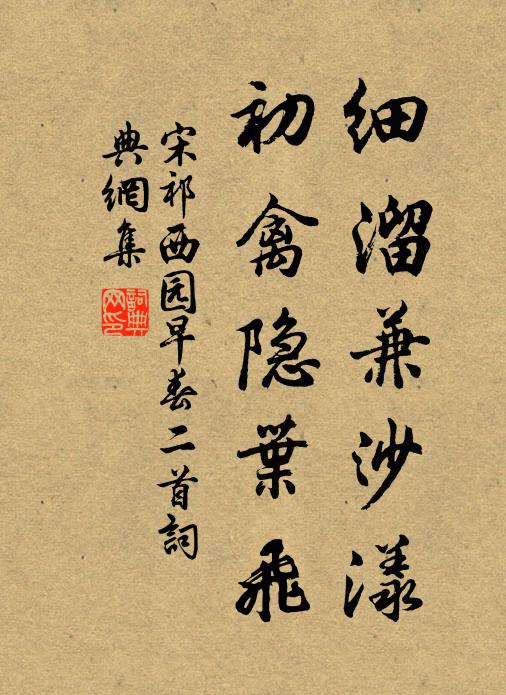 细溜兼沙漾
初禽隐葉飛
宋祁西园早春二首詞
典網集
詞典網印